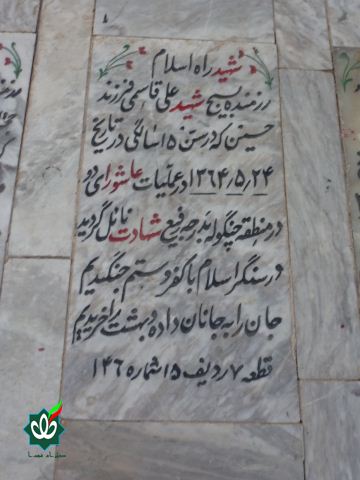 شهید راه اسلام
رزمنده بسیج شهید علی قاسمی فرزند
حسین که در سن ۱۵ سالگی در تاریخ
۱۳۶۴٫۵٫۲۴ در عملیات عاشورای دو
در منطقه چنگوله بدرجه رفیع شهادت نائل گردید
در سنگر اسلام با کفر و ستم جنگیدیم
جان را به جانان داده و بهشت را خریدیم
قطعه ۷ ردیف ۱۵ شماره ۱۴۶